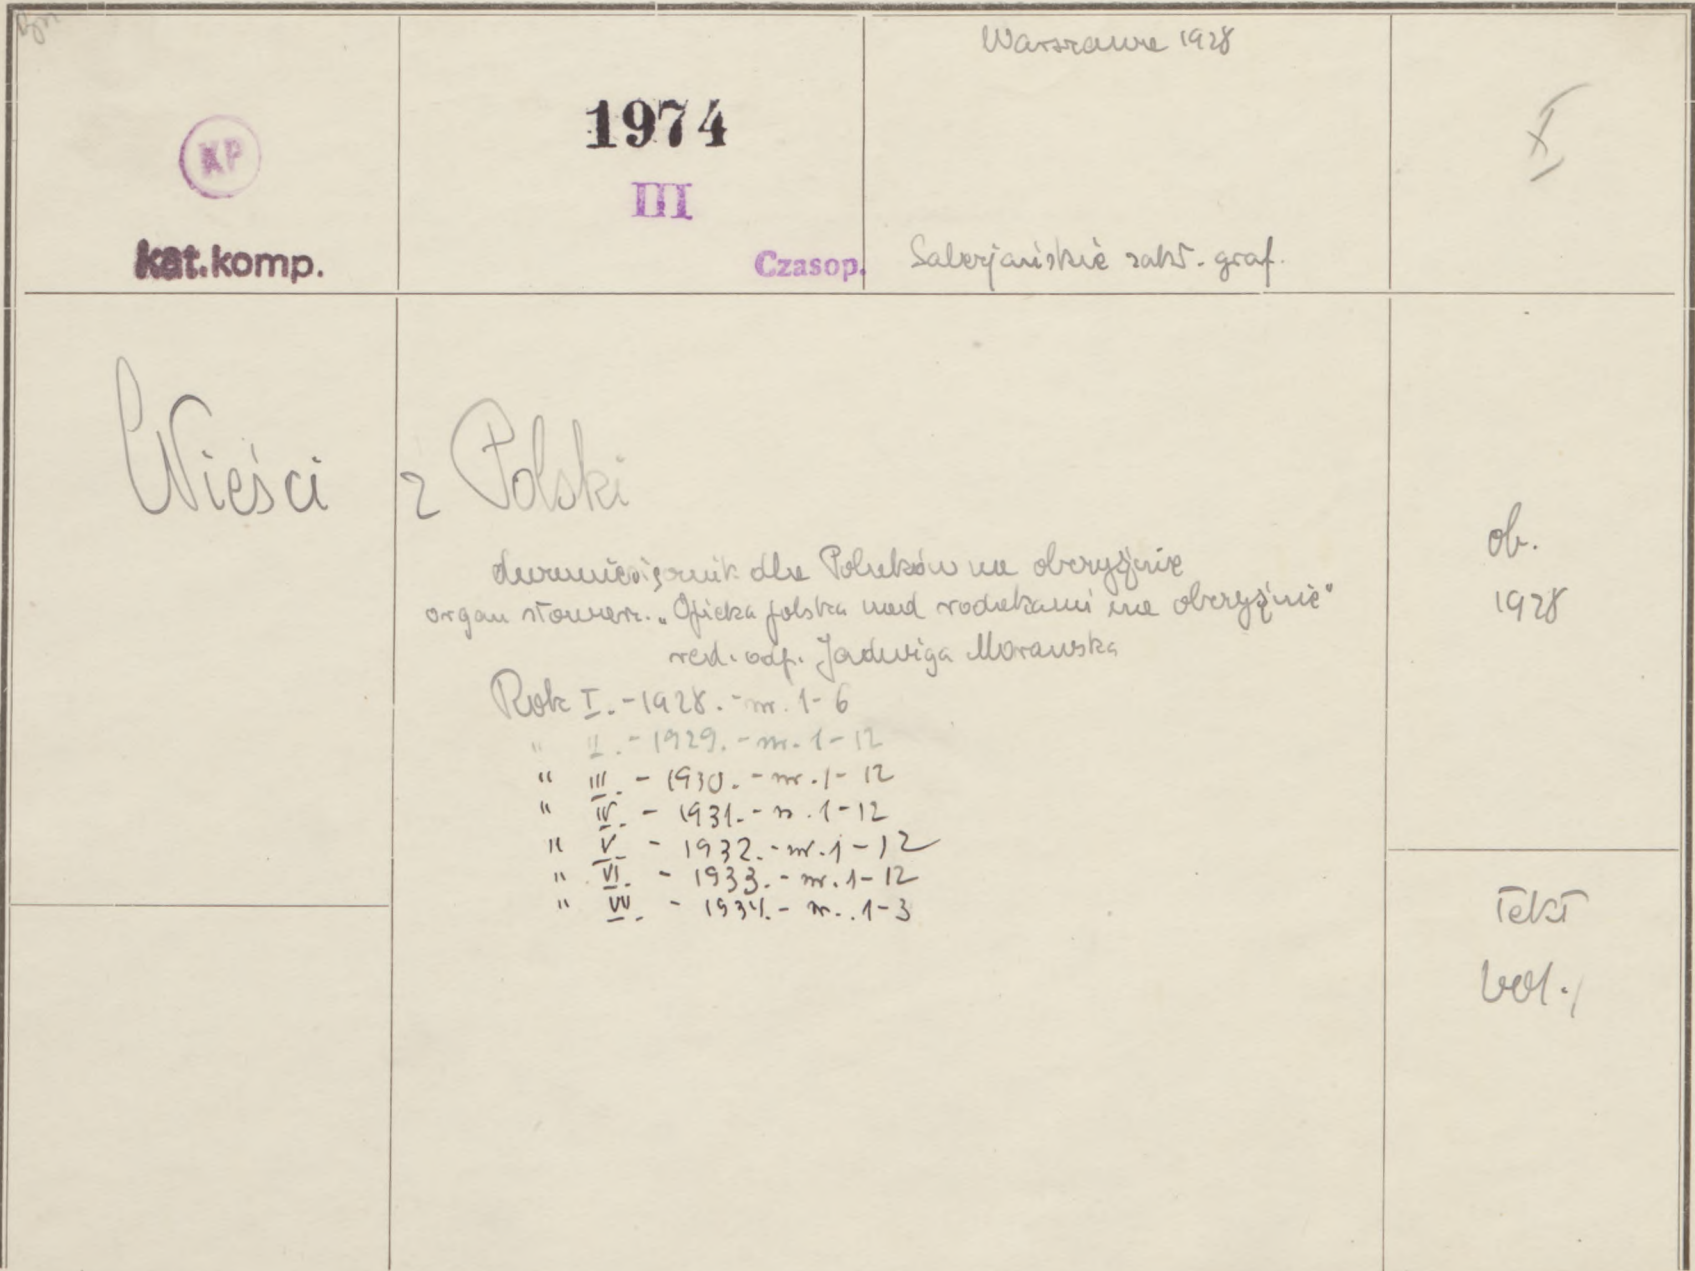 Warszawa 1928
1974
KP
III
kat. komp.
Czasop.
Salezjańskie zakł. graf.
Wieści z Polski
dwumiesięcznik dla Polaków na obczyźnie
organ stowarz. „Opieka polska nad rodakami na obczyźnie"
red. odp. Jadwiga Morawska
Rok I. - 1928. - nr. 1-6
" II. - 1929. - nr. 1-12
" III. - 1930. - nr. 1-12
" IV. - 1931. - n. 1-12
" V. - 1932. - nr. 1-12
" VI. - 1933. - nr. 1-12
" VII. - 1934. - nr. 1-3
ob.
1928
tekt
vol. 1